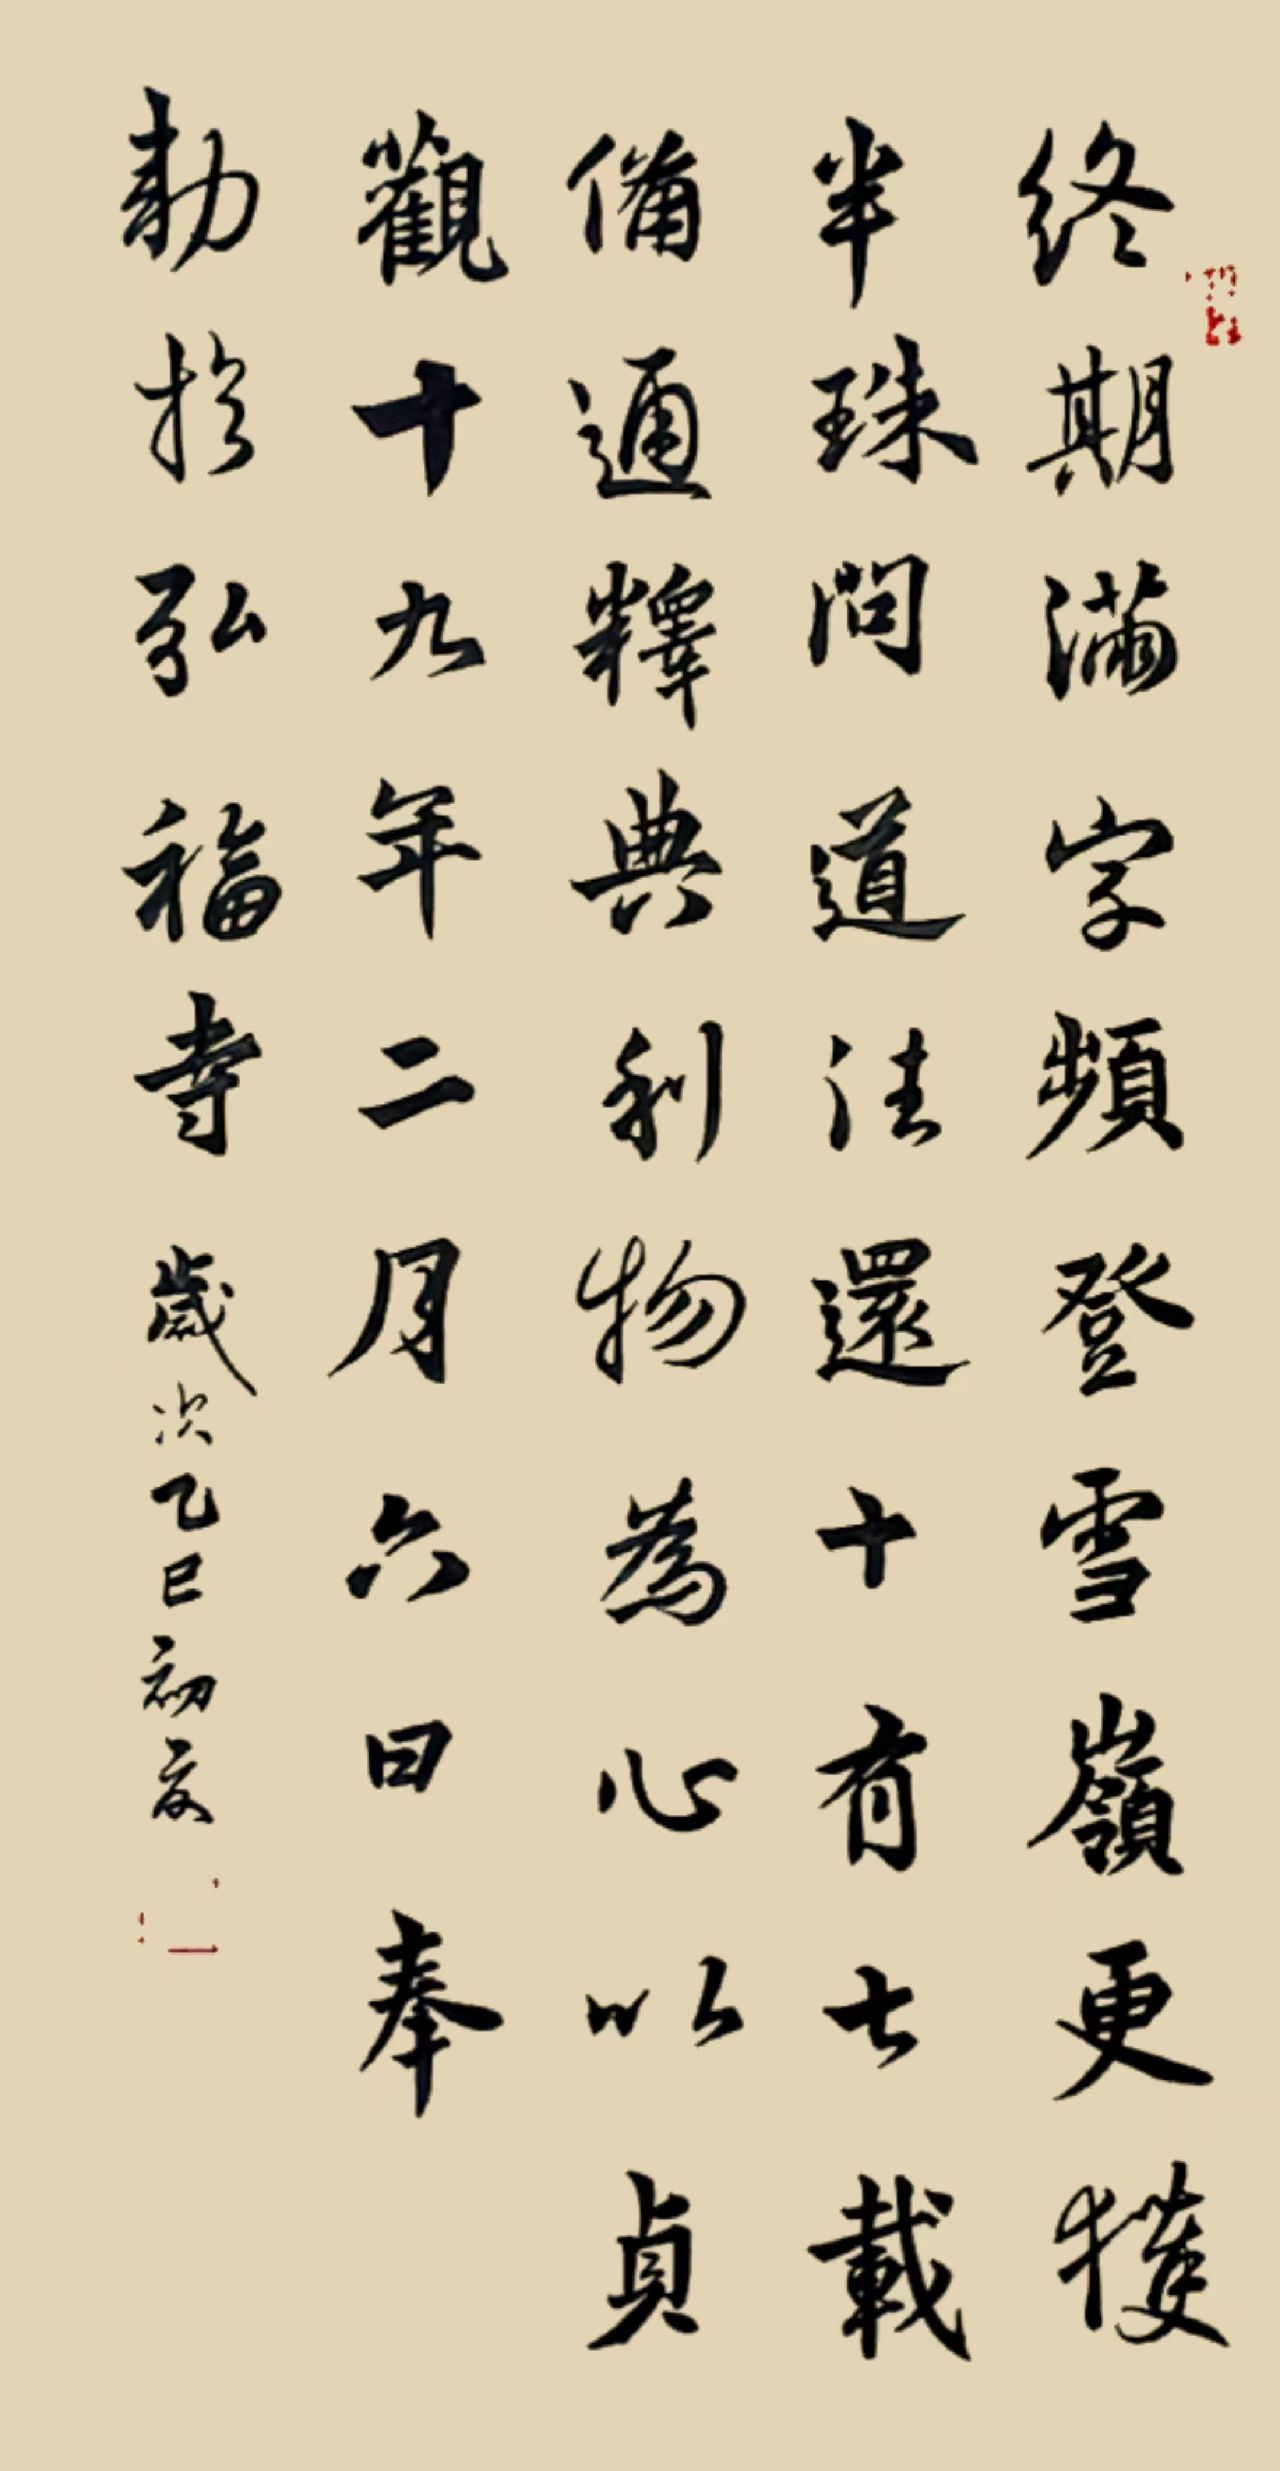 终期满字頻登雪嶺更獲
半珠問道法還十有七載
備通釋典利物為心以貞
觀十九年二月六日奉
勅於弘福寺 歲次乙巳初夏